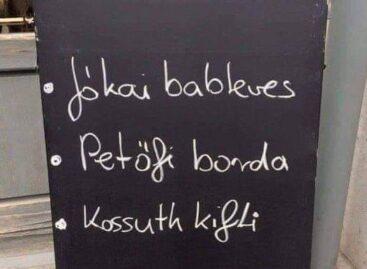 Jókai bableves
Petőfi borda
Kossuth kifli